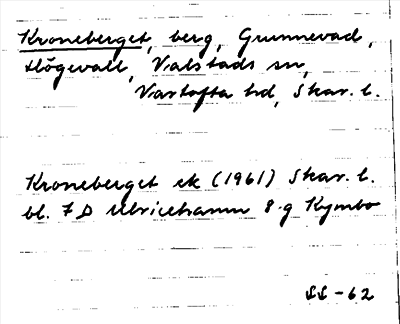 Kroneberget, berg, Grunnevad,
Högevall, Valstads sn,
Vartofta hd, Skar. l.
Kroneberget ek (1961) Skar. l.
bl. 7 D Ulricehamn 8.g Kymbo
SS-62